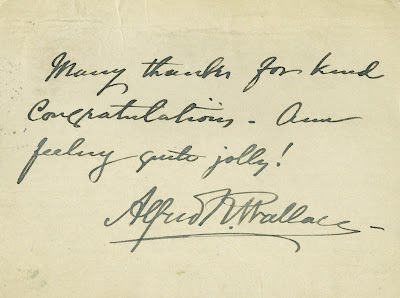 Many thanks for kind
Congratulations - Am
feeling quite jolly!
Alfred R. Wallace